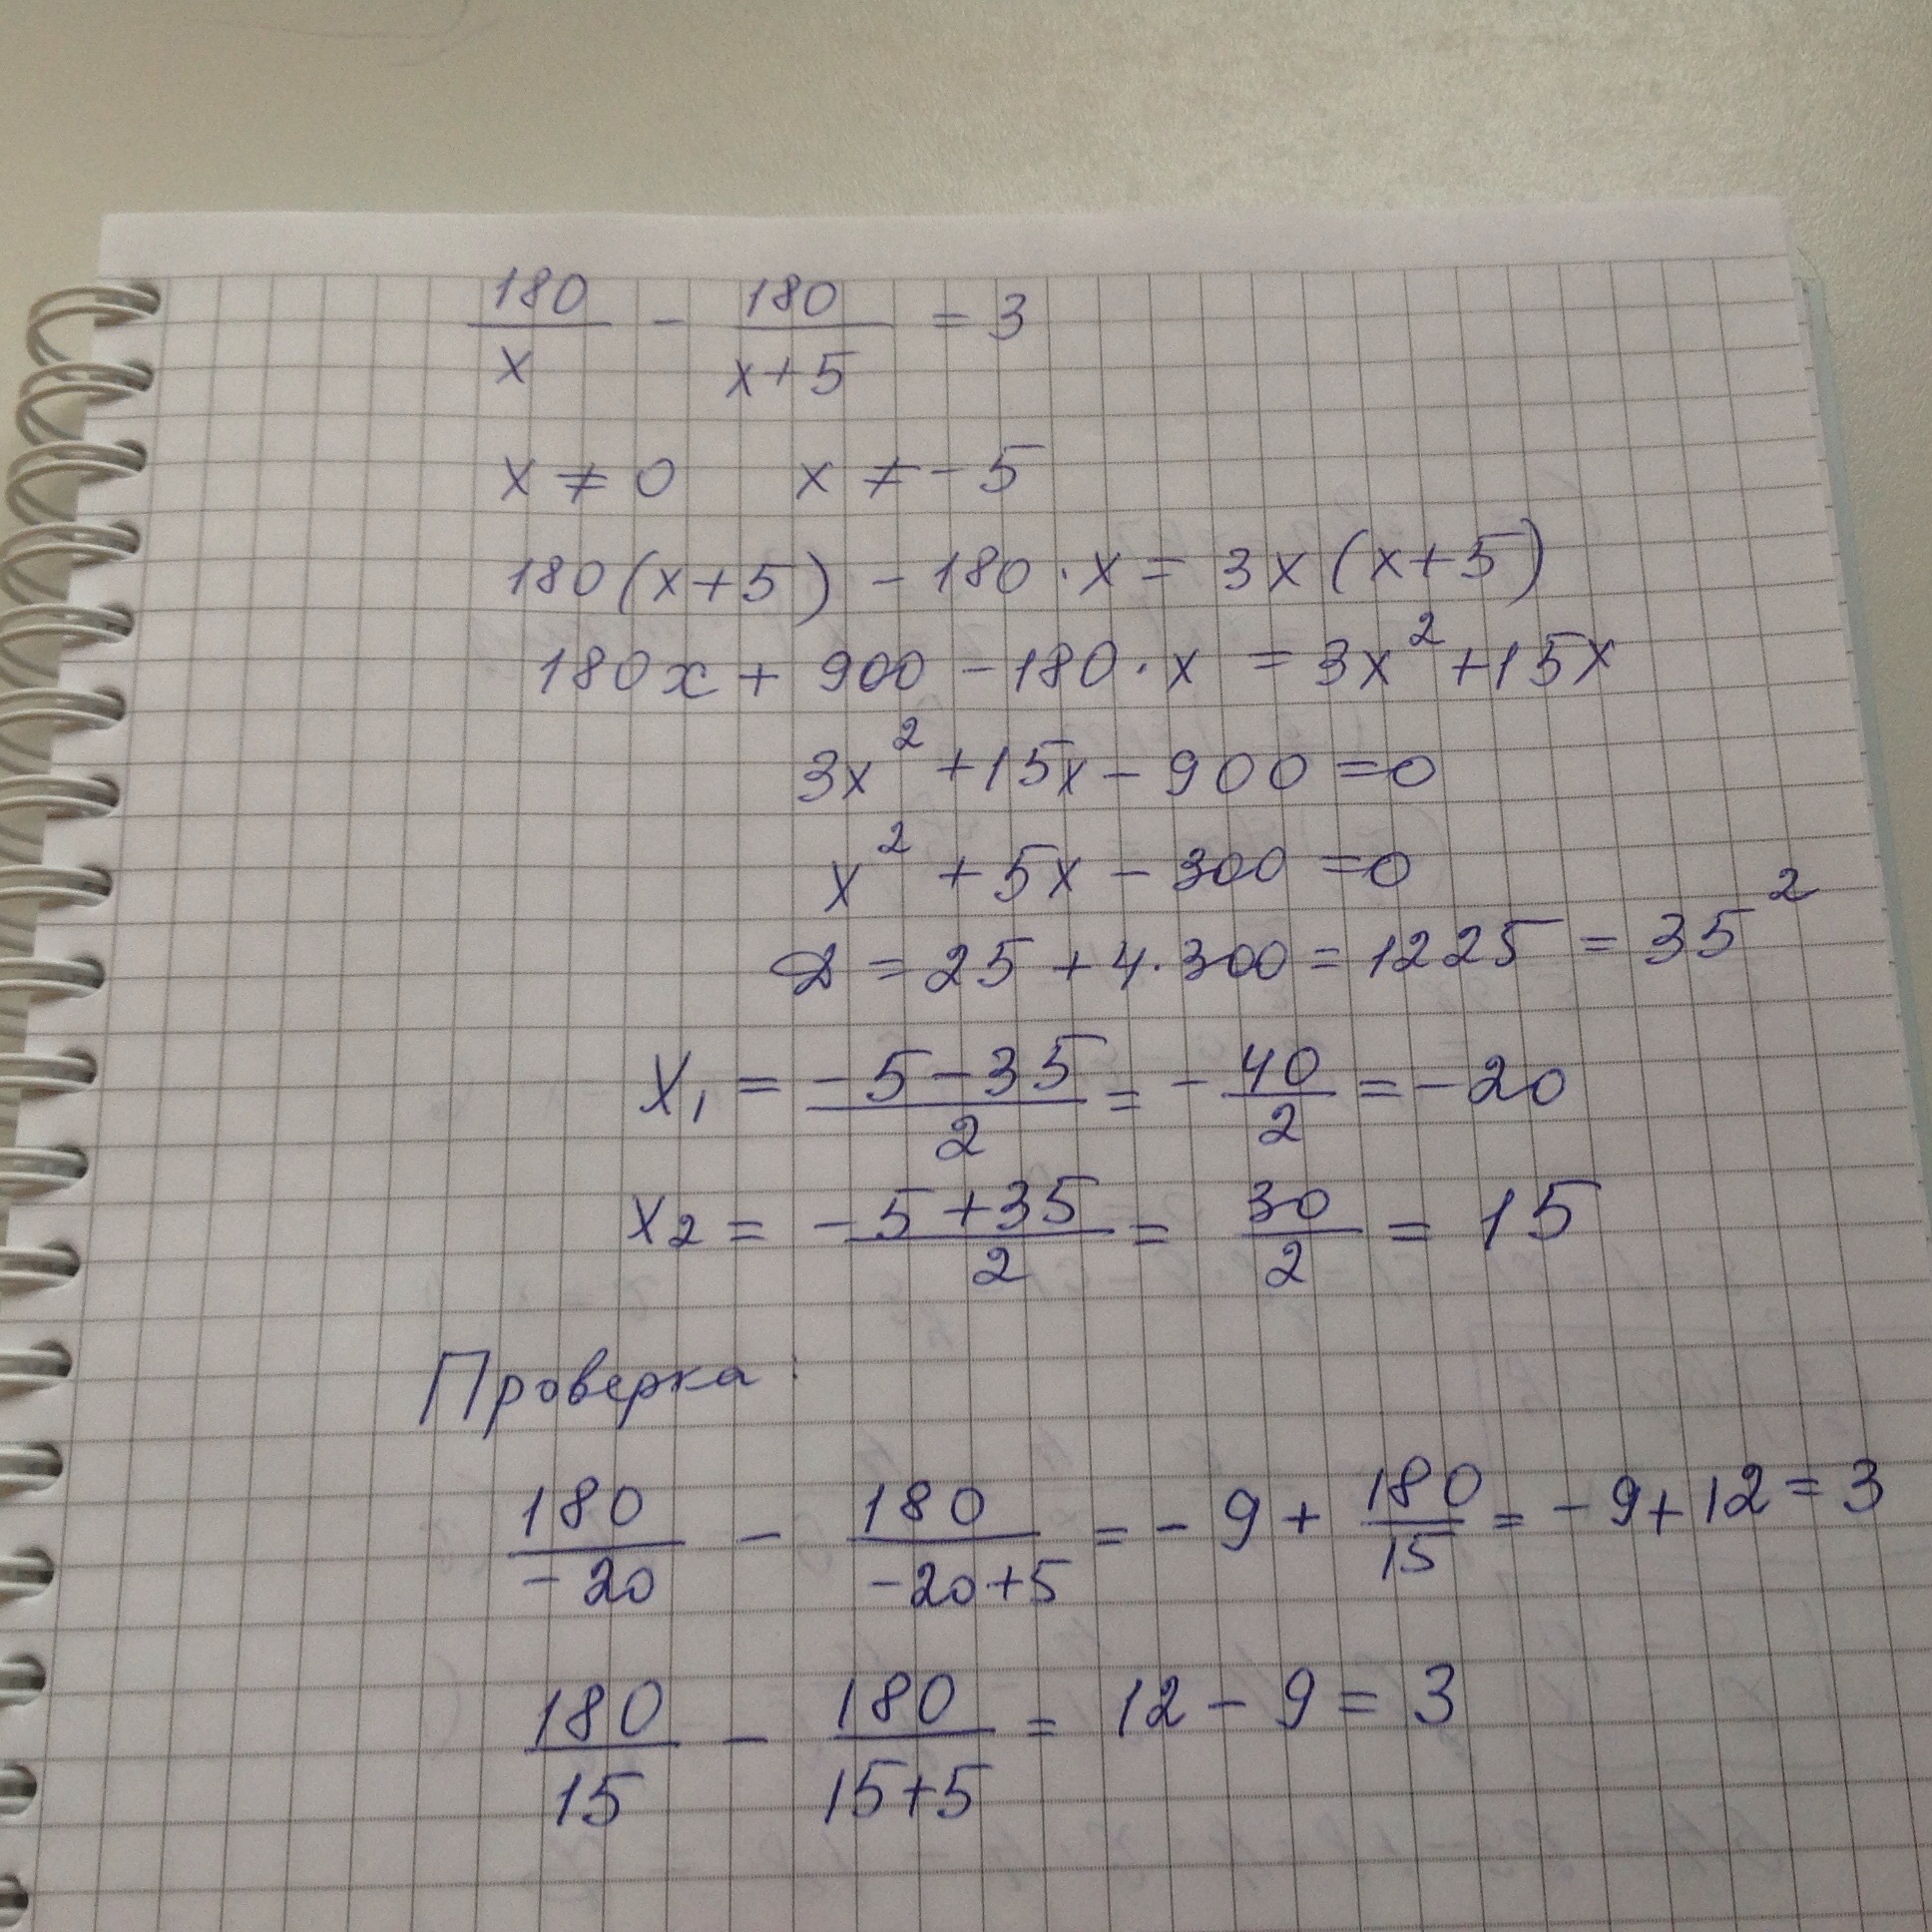 180/x - 180/(x+5) = 3
x ≠ 0 x ≠ -5
180(x+5) - 180·x = 3x(x+5)
180x + 900 - 180·x = 3x² + 15x
3x² + 15x - 900 = 0
x² + 5x - 300 = 0
D = 25 + 4·300 = 1225 = 35²
x₁ = (-5-35)/2 = -40/2 = -20
x₂ = (-5+35)/2 = 30/2 = 15
Проверка:
180/-20 - 180/(-20+5) = -9 + 180/15 = -9+12 = 3
180/15 - 180/(15+5) = 12 - 9 = 3